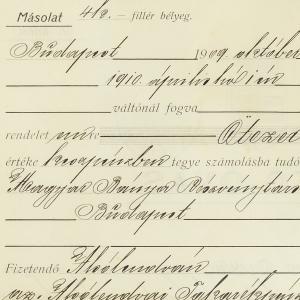 Másolat 4 k. — fillér bélyeg.
Budapest 1909 október
1910. április hó 1 én
váltónál fogva
rendelet mire Ötezer
értéke készpénzben tegye számolásba tudó
Magyar Bánya Részvénytárs
Budapest
Fizetendő Alsólendván
az Alsólendvai Takarékpén